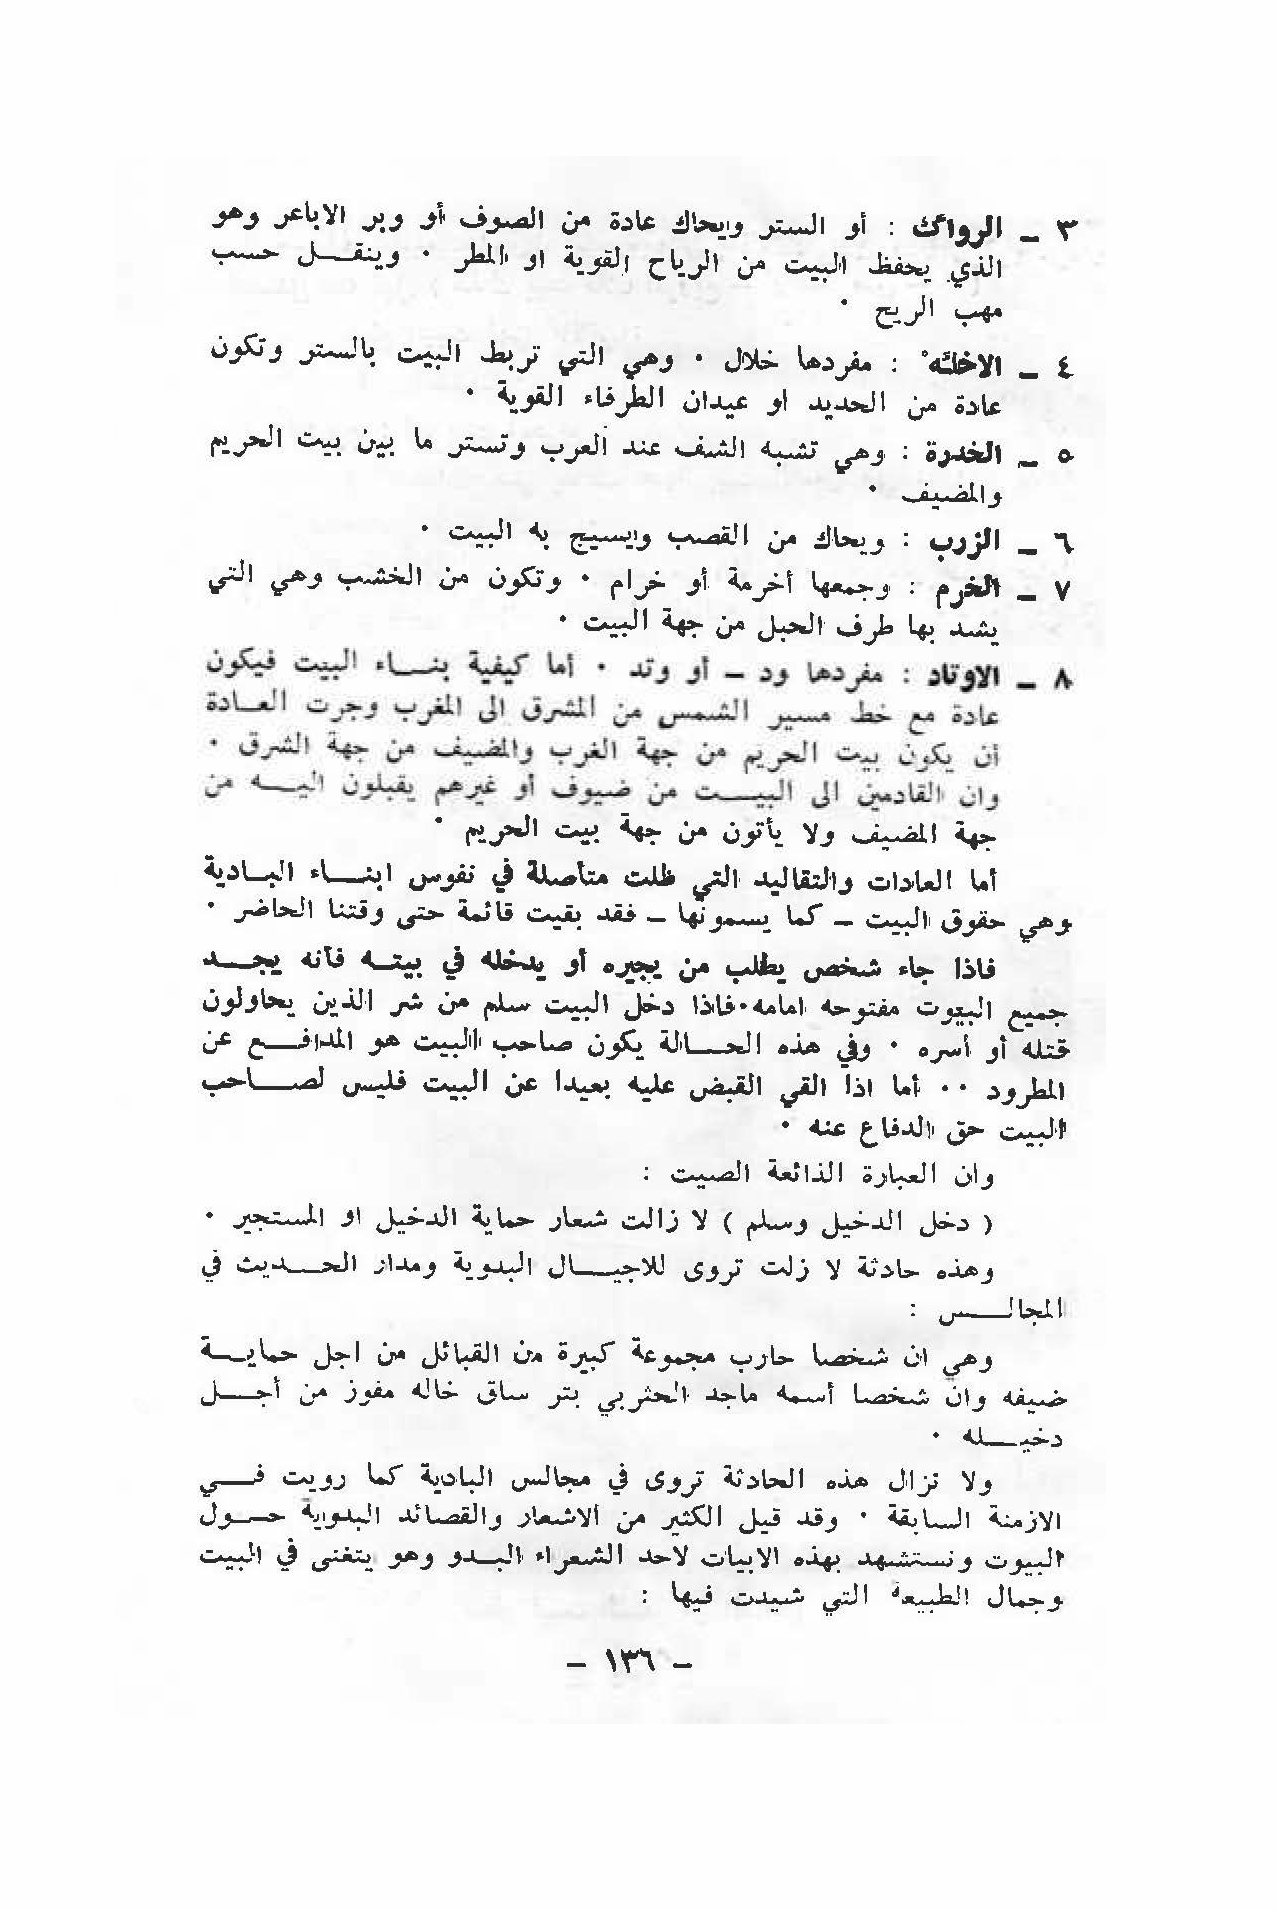 ٣ ـ الرواگ : أو الستر ويحاك عادة من الصوف أو وبر الاباعر وهو
الذي يحفظ البيت من الرياح القوية او المطر ٠ وينقـــل حسب
مهب الريح ٠
٤ ـ الاخلته : مفردها خلال ٠ وهي التي تربط البيت بالستر وتكون
عادة من الحديد او عيدان الطرفاء القوية ٠
٥ ـ الخدرة : وهي تشبه الشف عند العرب وتستر ما بين بيت الحريم
والمضيف ٠
٦ ـ الزرب : ويحاك من القصب ويسيج به البيت ٠
٧ ـ الخرم : وجمعها أخرمة أو خرام ٠ وتكون من الخشب وهي التي
يشد بها طرف الحبل من جهة البيت ٠
٨ ـ الاوتاد : مفردها ود ـ أو وتد ٠ أما كيفية بنـــاء البيت فيكون
عادة مع خط مسير الشمس من المشرق الى المغرب وجرت العـادة
أن يكون بيت الحريم من جهة الغرب والمضيف من جهة الشرق ٠
وان القادمين الى البيـــت من ضيوف أو غيرهم يقبلون اليـــه من
جهة المضيف ولا يأتون من جهة بيت الحريم ٠
أما العادات والتقاليد التي ظلت متأصلة في نفوس ابنـــاء البـادية
وهي حقوق البيت ـ كما يسمونها ـ فقد بقيت قائمة حتى وقتنا الحاضر ٠
فاذا جاء شخص يطلب من يجيره أو يدخله في بيتـه فآنه يجـــد
جميع البيوت مفتوحه امامه٠فاذا دخل البيت سلم من شر الذين يحاولون
قتله أو أسره ٠ وفي هذه الحـــالة يكون صاحب البيت هو المدافـــع عن
المطرود ٠٠ أما اذا القي القبض عليه بعيدا عن البيت فليس لصـــاحب
البيت حق الدفاع عنه ٠
وان العبارة الذائعة الصيت :
( دخل الدخيل وسلم ) لا زالت شعار حماية الدخيل او المستجير ٠
وهذه حادثة لا زلت تروى للاجيـــال البدوية ومدار الحـــديث في
المجالـــس :
وهي ان شخصا حارب مجموعة كبيرة من القبائل من اجل حمايـــة
ضيفه وان شخصا أسمه ماجد الحثربي بتر ساق خاله مفوز من أجـــل
دخيـــله ٠
ولا تزال هذه الحادثة تروى في مجالس البادية كما رويت فـــي
الازمنة السابقة ٠ وقد قيل الكثير من الاشعار والقصائد البدوية حـــول
البيوت ونستشهد بهذه الابيات لاحد الشعراء البـدو وهو يتغنى في البيت
وجمال الطبيعة التي شيدت فيها :
ـ ١٣٦ ـ